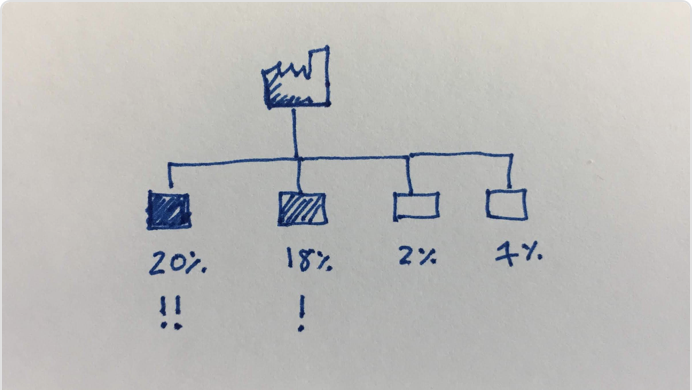 20% 18% 2% 7%
!! !